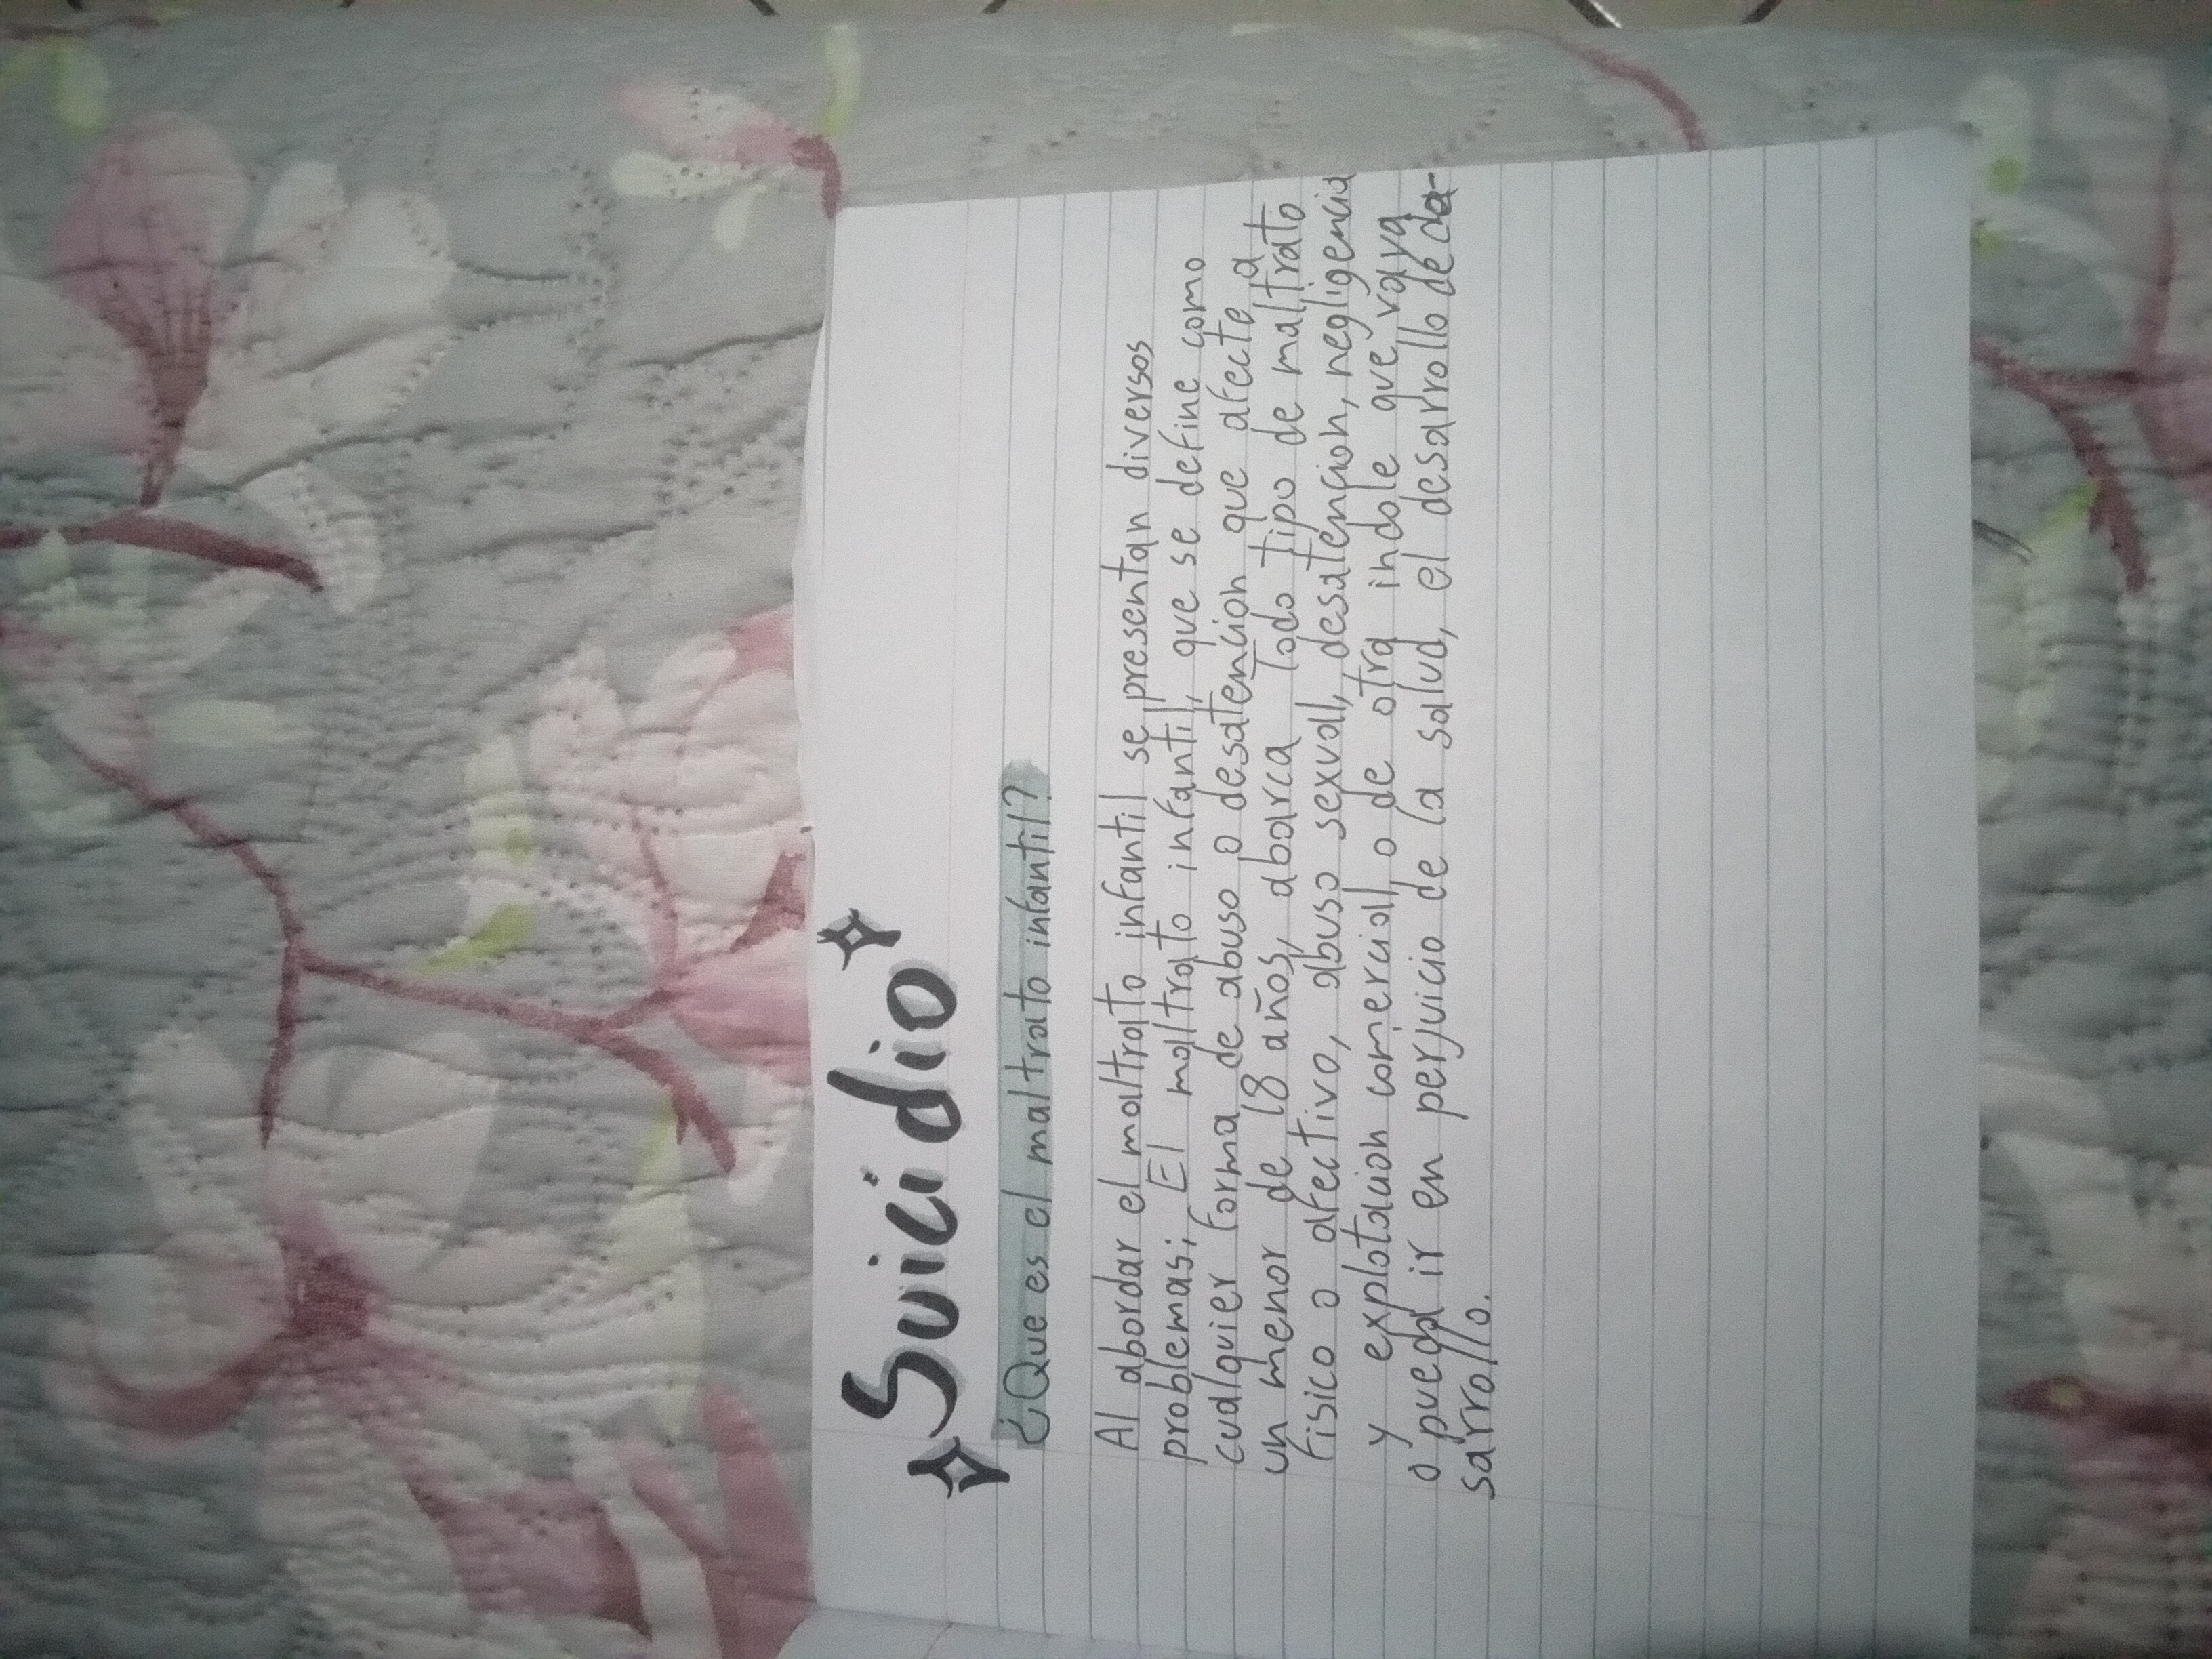 Suicidio
¿Que es el maltrato infantil?
Al abordar el maltrato infantil se presentan diversos
problemas; El maltrato infantil, que se define como
cualquier forma de abuso o desatencion que afecte a
un menor de 18 años, abarca todo tipo de maltrato
fisico o afectivo, abuso sexual, desatencion, negligencia
y explotacion comercial o de otra indole que vaya
o pueda ir en perjuicio de la salud, el desarrollo de
sarrollo.